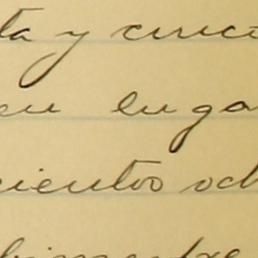 ta y cinco
en luga
cientos och